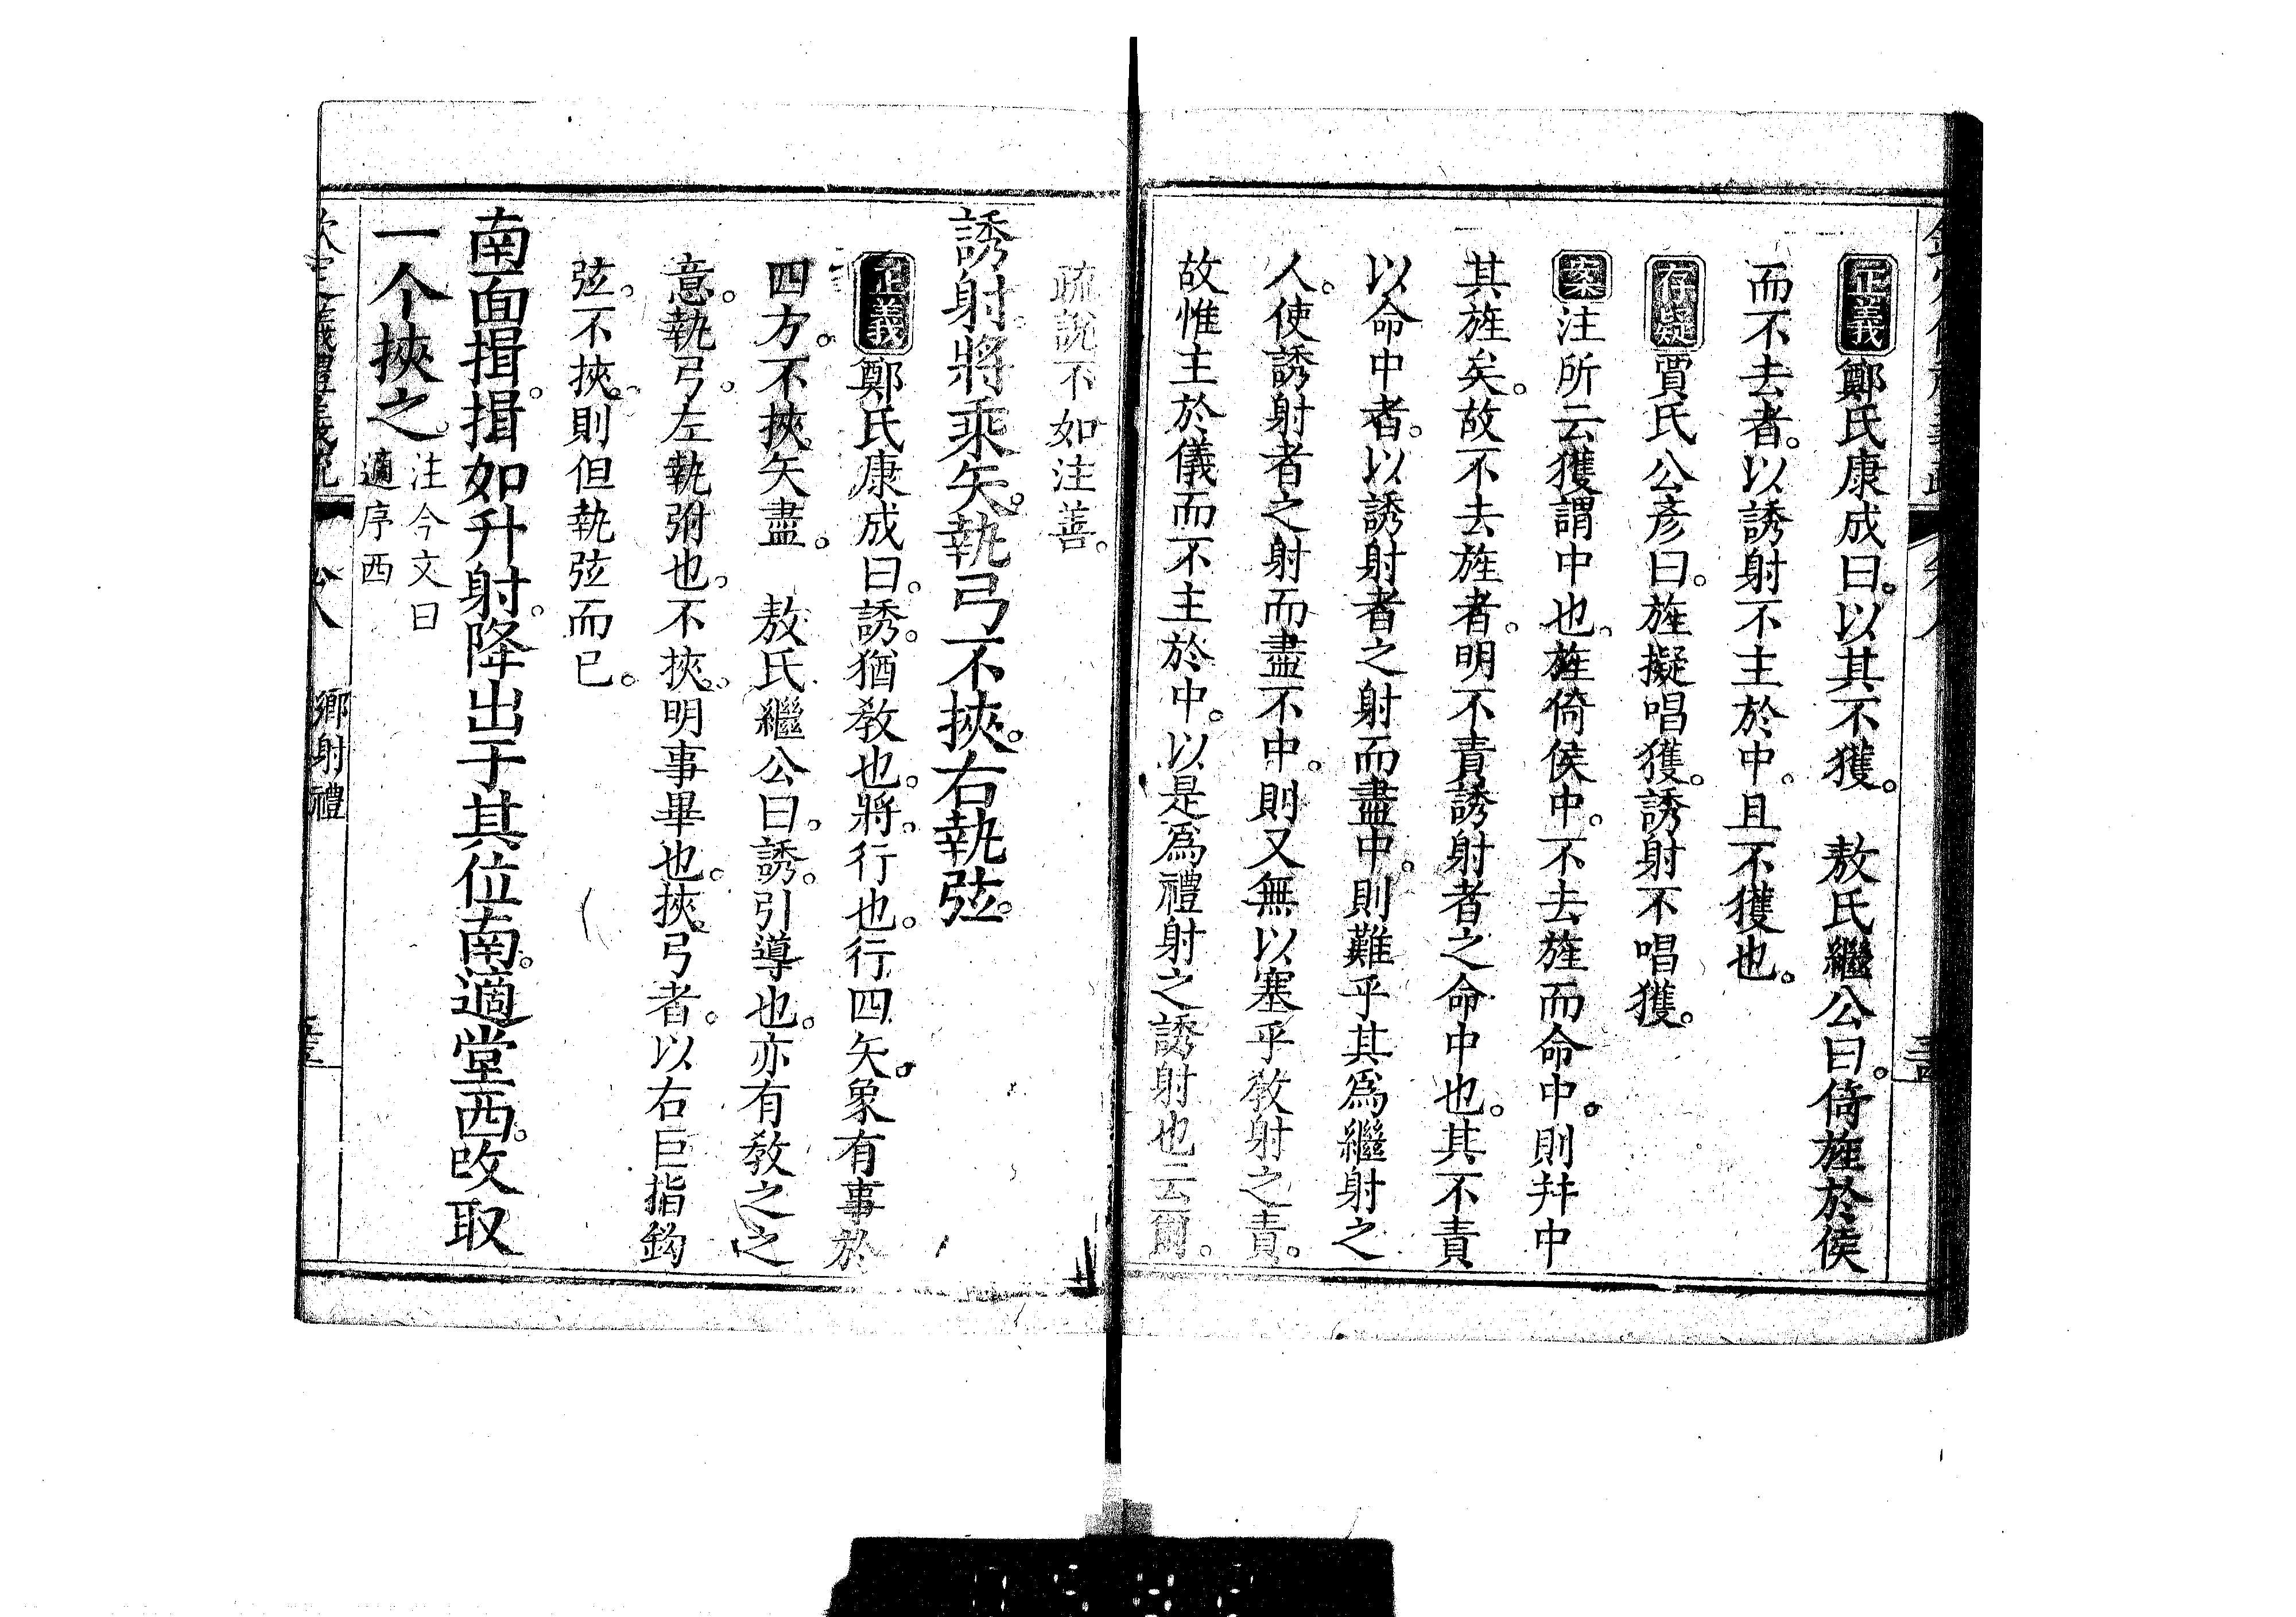 正義鄭氏康成曰。以其不獲。　敖氏繼公曰。倚旌於侯
而不去者。以誘射不主於中。且不獲也。
存疑賈氏公彥曰。旌擬唱獲。誘射不唱獲。
案注所云獲謂中也。旌倚侯中。不去旌而命中。則幷中
其旌矣。故不去旌者。明不責誘射者之命中也。其不責
以命中者。以誘射者之射而盡中。則難乎其爲繼射之
人。使誘射者之射而盡不中。則又無以塞乎敎射之責。
故惟主於儀而不主於中。以是爲禮射之誘射也云爾。
疏說不如注善。
誘射。將乘矢。執弓不挾。右執弦。
正義鄭氏康成曰。誘。猶敎也。將。行也。行四矢。象有事於
四方。不挾。矢盡。　敖氏繼公曰。誘。引導也。亦有敎之之
意。執弓。左執弣也。不挾。明事畢也。挾弓者。以右巨指鉤
弦。不挾。則但執弦而已。
南面揖。揖如升射。降出于其位南。適堂西。改取
一个挾之。注今文曰
適序西
鄉射禮